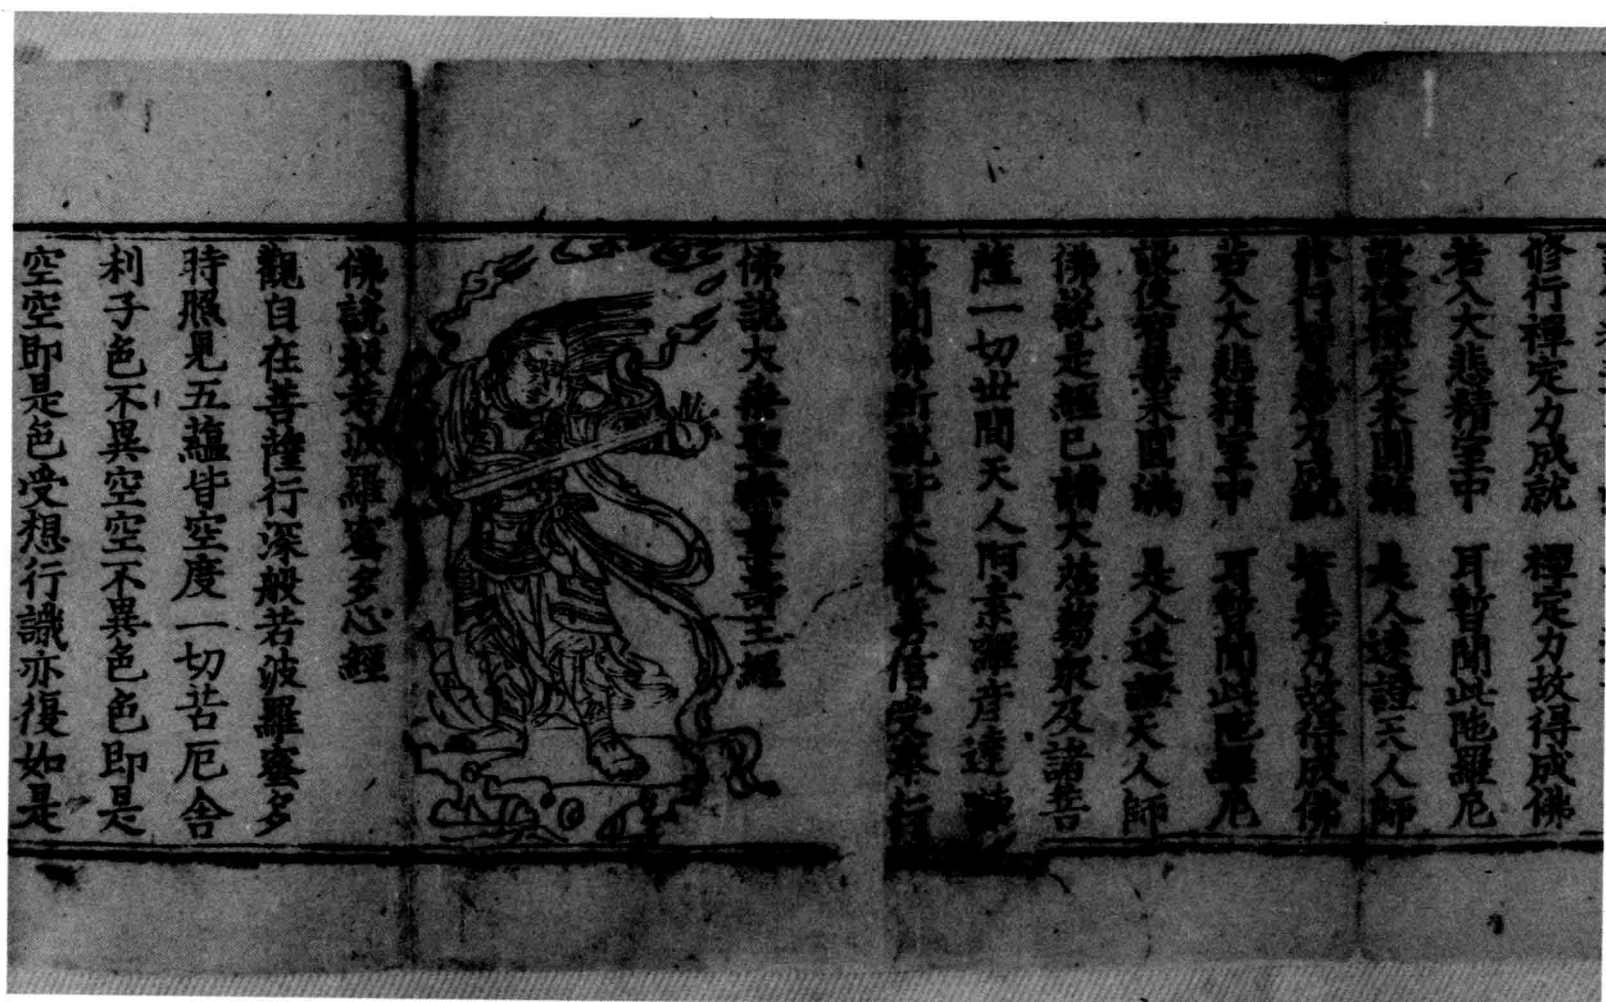 修行禪定力成就　禪定力故得成佛
若入大悲精室中　耳暫聞此陁羅尼
設使禪定未圓滿　是人速證天人師
修行智慧力成就　智慧力故得成佛
若入大悲精室中　耳暫聞此陁羅尼
設使智慧未圓滿　是人速證天人師
佛說是經已諸大苾蒭衆及諸菩
薩一切世間天人阿素羅彦達
聞佛所說皆大歡喜信受奉行
佛說大乗聖無量壽王經
佛說般若波羅蜜多心經
觀自在菩薩行深般若波羅蜜多
時照見五蘊皆空度一切苦厄舍
利子色不異空空不異色色即是
空空即是色受想行識亦復如是